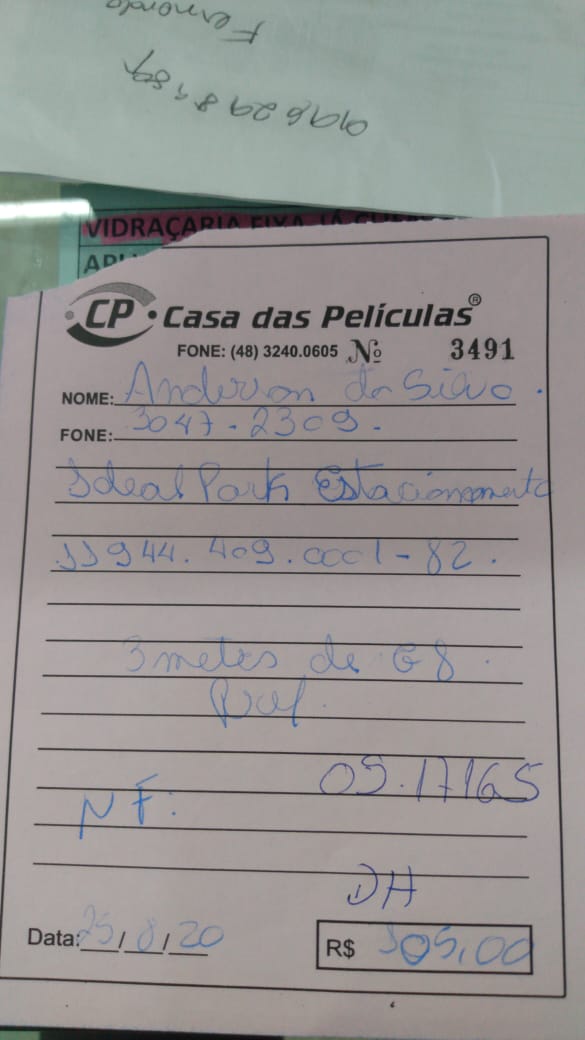 Fernando
VIDRAÇARIA FIXA JÁ
CP Casa das Películas®
FONE: (48) 3240.0605 Nº 3491
NOME: Anderson da Silva.
FONE: 3047-2309.
Ideal Park Estacionamento
11944.409.0001-82.
3 metes de G8.
NF:
09.17165
DH
Data: 25/8/20
R$ 105,00